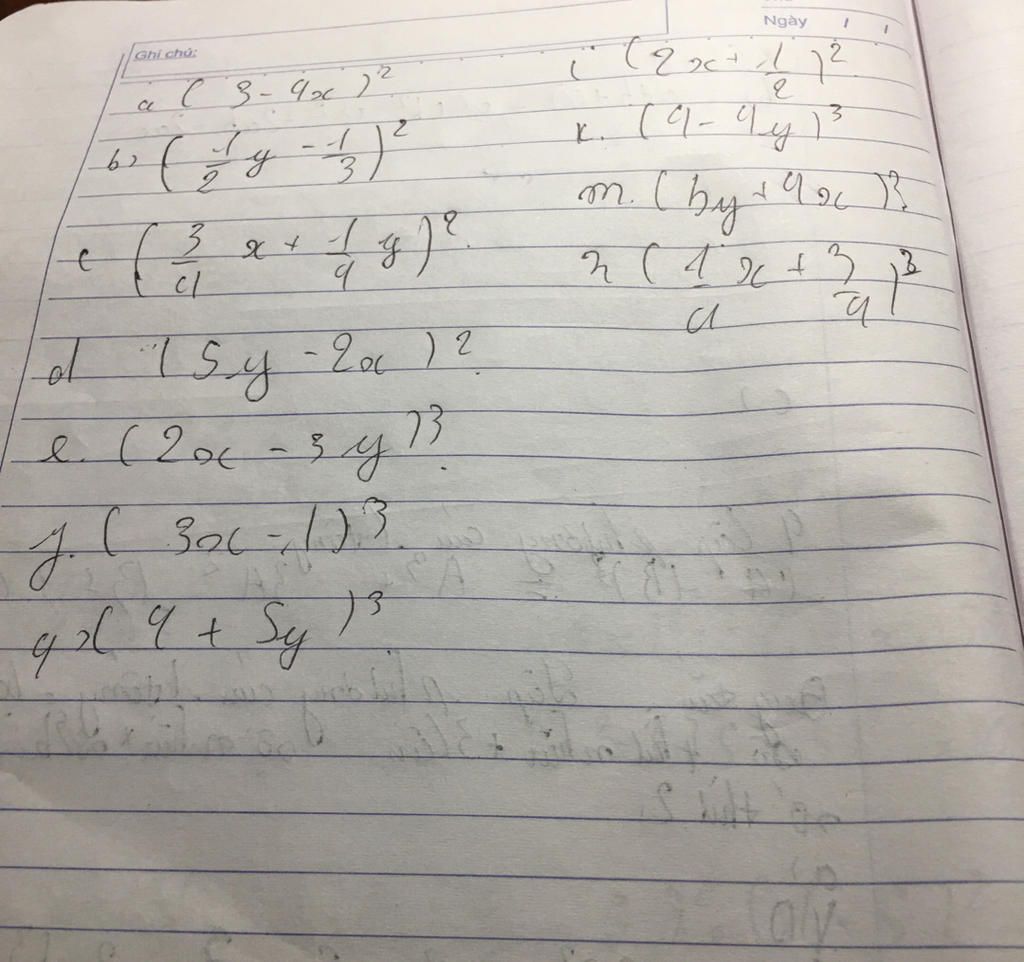 Ghi chú:
Ngày / /
a ( 3 - 4x )²
b) ( 1/2 y - 1/3 )²
c ( 3/4 x + 1/4 y )²
d ( 5y - 2x )²
e. ( 2x - 3y )³
f. ( 3x - 1 )³
g) ( 4 + 5y )³
i ( 2x + 1/2 )²
k. ( 4 - 4y )³
m. ( 5y + 4x )³
n ( 1/4 x + 3/4 )³